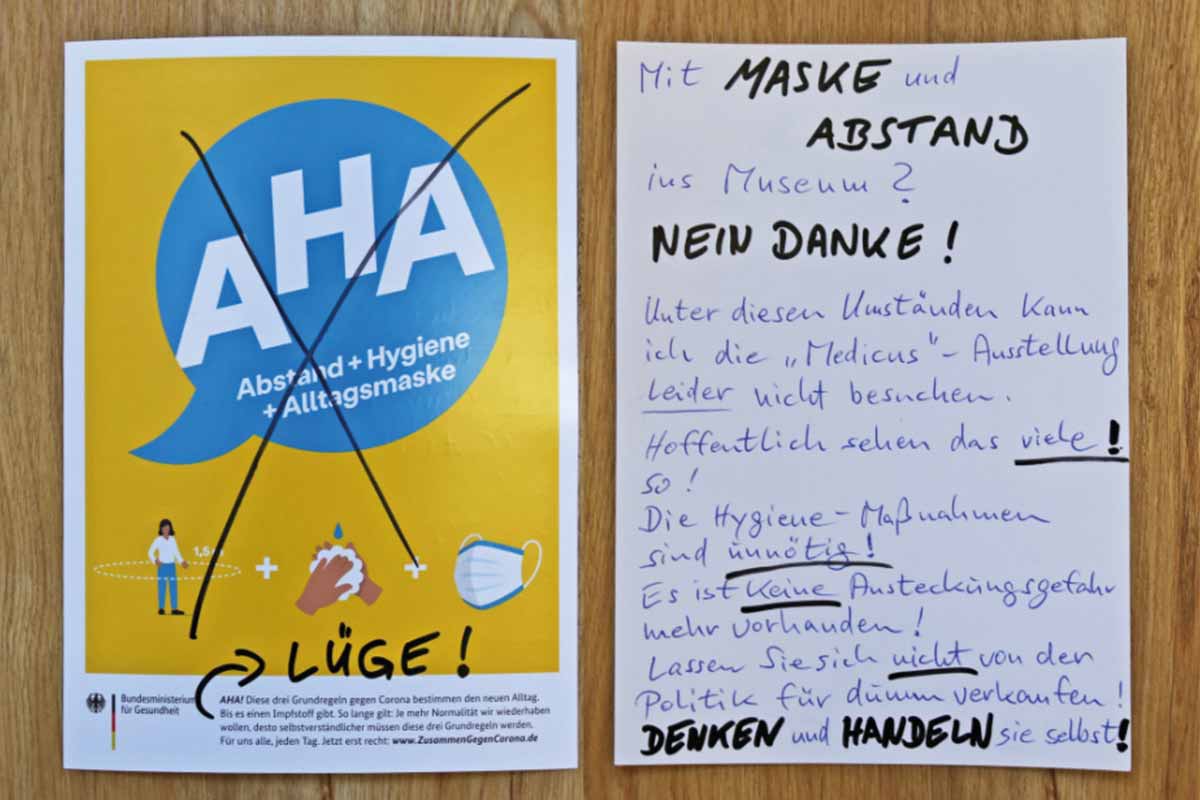 AHA
Abstand + Hygiene
+ Alltagsmaske
1,5
+
+
LÜGE!
Bundesministerium
für Gesundheit
AHA! Diese drei Grundregeln gegen Corona bestimmen den neuen Alltag.
Bis es einen Impfstoff gibt. So lange gilt: Je mehr Normalität wir wiederhaben
wollen, desto selbstverständlicher müssen diese drei Grundregeln werden.
Für uns alle, jeden Tag. Jetzt erst recht: www.ZusammenGegenCorona.de
Mit MASKE und
ABSTAND
ins Museum?
NEIN DANKE!
Unter diesen Umständen kann
ich die „Medicus"-Ausstellung
leider nicht besuchen.
Hoffentlich sehen das viele!
so!
Die Hygiene-Maßnahmen
sind unnötig!
Es ist keine Ansteckungsgefahr
mehr vorhanden!
Lassen Sie sich nicht von der
Politik für dumm verkaufen!
DENKEN und HANDELN sie selbst!